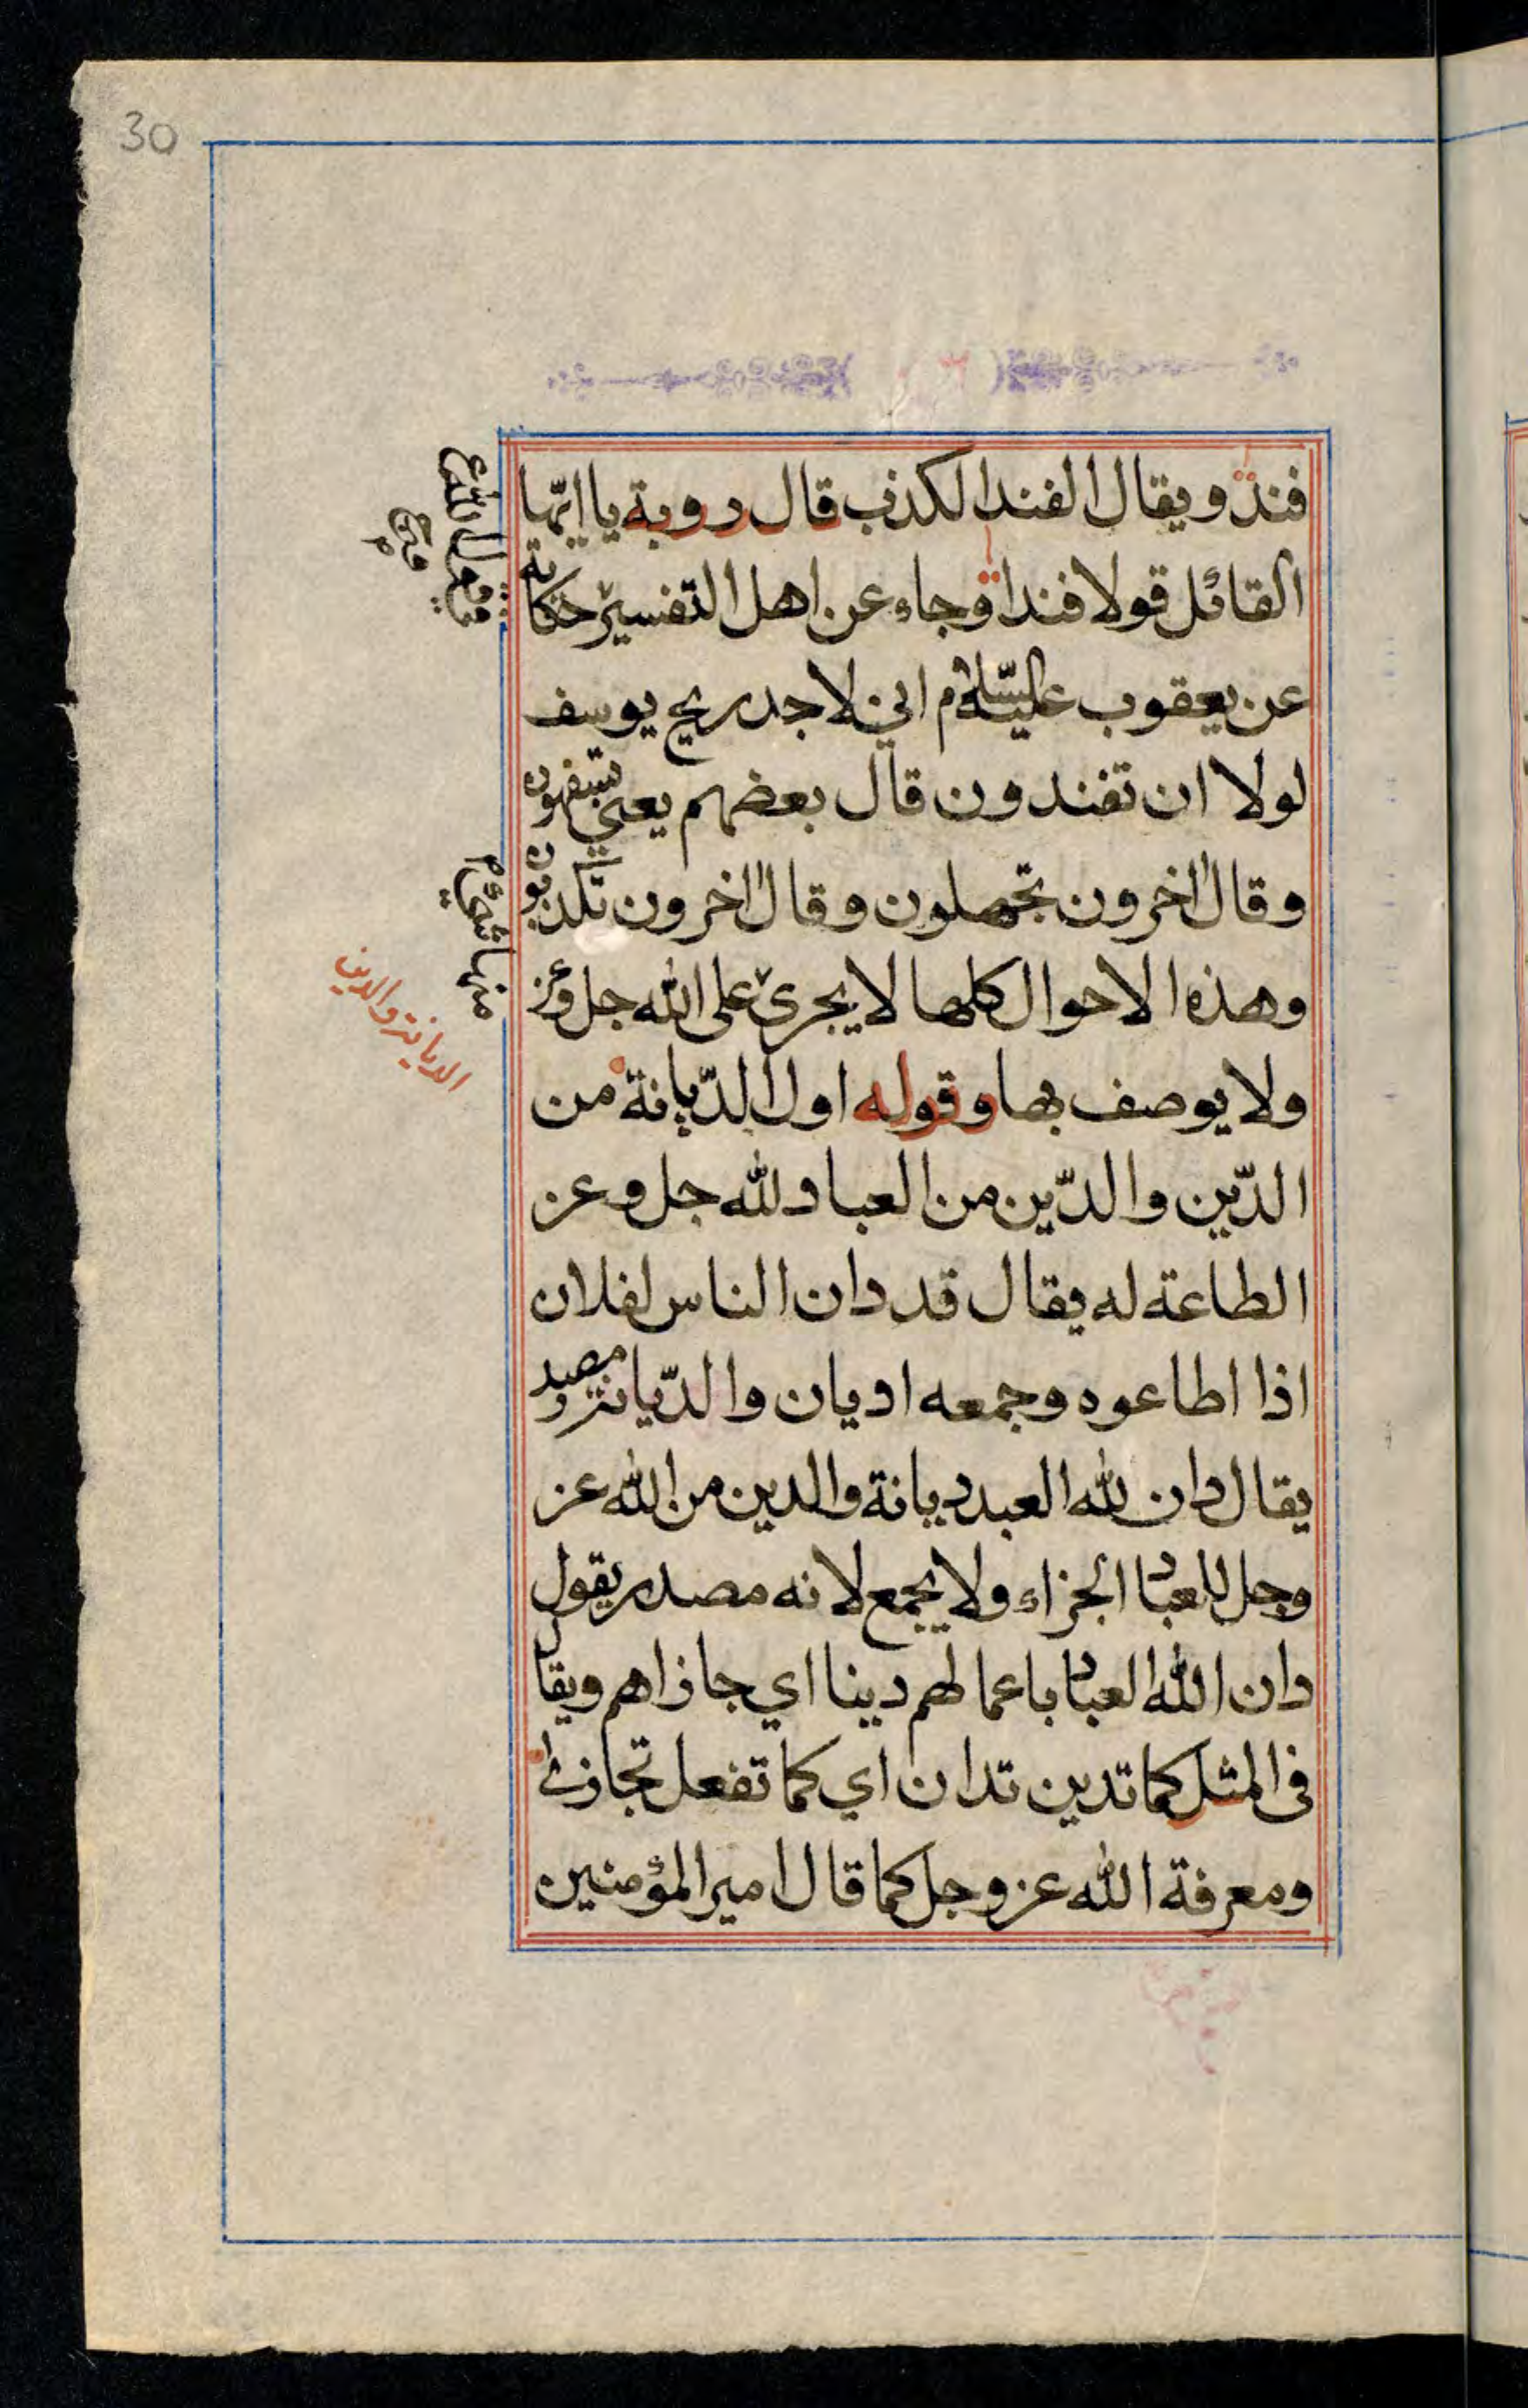 30
فند ويقال الفند الكذب قال روبة يا ايّها
القائل قولا فندا وجاء عن اهل التفسير حكاية
عن يعقوب عليه السّلام اني لاجد ريح يوسف
لولا ان تفندون قال بعضهم يعني تسفهون
وقال اخرون تجهلون وقال اخرون تكذبون
وهذه الاحوال كلها لا يجرى على الله جل وعز
ولا يوصف بها وقوله اول الدّيانة من
الدّين والدّين من العباد لله جل وعز
الطاعة له يقال قد دان الناس لفلان
اذا اطاعوه وجمعه اديان والدّيانة مصدر
يقال دان لله العبد ديانة والدين من الله عز
وجل للعباد الجزاء ولا يجمع لانه مصدر يقول
دان الله العباد باعمالهم دينا اي جازاهم ويقال
فى المثل كما تدين تدان اي كما تفعل تجازى
ومعرفة الله عز وجل كما قال امير المؤمنين
الديانة والدين